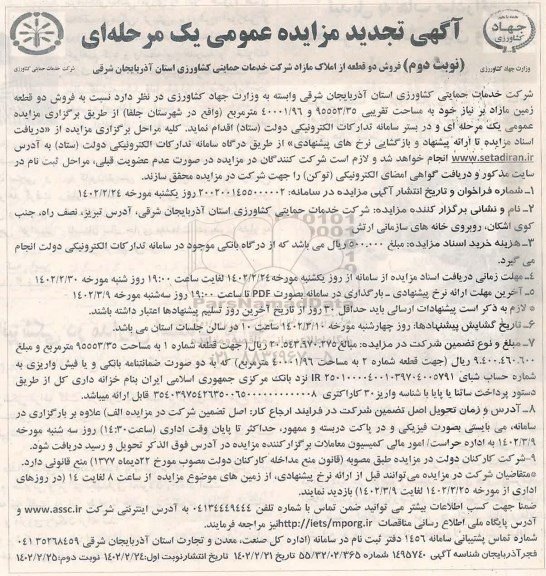 جهاد کشاورزی
آگهی تجدید مزایده عمومی یک مرحله‌ای
وزارت جهاد کشاورزی
(نوبت دوم) فروش دو قطعه از املاک مازاد شرکت خدمات حمایتی کشاورزی استان آذربایجان شرقی
شرکت خدمات حمایتی کشاورزی
شرکت خدمات حمایتی کشاورزی استان آذربایجان شرقی وابسته به وزارت جهاد کشاورزی در نظر دارد نسبت به فروش دو قطعه
زمین مازاد بر نیاز خود به مساحت تقریبی ۹۵۵۵۳/۳۵ و ۴۰۰۰۱/۹۶ مترمربع (واقع در شهرستان جلفا) از طریق برگزاری مزایده
عمومی یک مرحله ای و در بستر سامانه تدارکات الکترونیکی دولت (ستاد) اقدام نماید. کلیه مراحل برگزاری مزایده از «دریافت
اسناد مزایده تا ارائه پیشنهاد و بازگشایی نرخ های پیشنهادی» از طریق درگاه سامانه تدارکات الکترونیکی دولت (ستاد) به آدرس
www.setadiran.ir انجام خواهد شد و لازم است شرکت کنندگان در مزایده در صورت عدم عضویت قبلی، مراحل ثبت نام در
سایت مذکور و دریافت گواهی امضای الکترونیکی (توکن) را جهت شرکت در مزایده محقق سازند.
۱-شماره فراخوان و تاریخ انتشار آگهی مزایده در سامانه: ۲۰۰۲۰۰۱۴۵۵۰۰۰۰۰۲ روز یکشنبه مورخه ۱۴۰۲/۲/۲۴
۲-نام و نشانی برگزار کننده مزایده: شرکت خدمات حمایتی کشاورزی استان آذربایجان شرقی، آدرس تبریز، نصف راه، جنب
کوی اشکان، روبروی خانه های سازمانی ارتش
۳-هزینه خرید اسناد مزایده: مبلغ ۵۰۰.۰۰۰ ریال می باشد که از درگاه بانکی موجود در سامانه تدارکات الکترونیکی دولت انجام
می گیرد.
۴-مهلت زمانی دریافت اسناد مزایده از سامانه از روز یکشنبه مورخه ۱۴۰۲/۲/۲۴ لغایت ساعت ۱۹:۰۰ روز شنبه مورخه ۱۴۰۲/۲/۳۰
۵-آخرین مهلت ارائه نرخ پیشنهادی ـ بارگذاری در سامانه بصورت PDF تا ساعت ۱۹:۰۰ روز سه‌شنبه مورخه ۱۴۰۲/۳/۹
* لازم به ذکر است پیشنهادات ارسالی باید حداقل ۳۰ روز از تاریخ آخرین روز تسلیم پیشنهادها اعتبار داشته باشند.
۶-تاریخ گشایش پیشنهادها: روز چهارشنبه مورخه ۱۴۰۲/۳/۱۰ ساعت ۱۰ در سالن جلسات استان می باشد.
۷-مبلغ و نوع تضمین شرکت در مزایده: مبالغ ۳۰.۵۴۳.۹۷۰.۲۷۵ ریال (جهت قطعه شماره ۱ به مساحت ۹۵۵۵۳/۳۵ مترمربع و مبلغ
۹.۴۰۰.۴۶۰.۶۰۰ ریال (جهت قطعه شماره ۲ به مساحت ۴۰۰۰۱/۹۶ مترمربع) که به دو صورت ضمانتنامه بانکی و یا فیش واریزی به
شماره حساب شبای IR ۲۵۰۱۰۰۰۰۴۰۰۱۰۳۹۷۰۴۰۰۵۷۹۱ نزد بانک مرکزی جمهوری اسلامی ایران بنام خزانه داری کل از طریق
دستور پرداخت ساتنا یا پایا با شناسه واریز ۳۰ کاراکتری قابل ارائه میباشد.
۸-آدرس و زمان تحویل اصل تضمین شرکت در فرایند ارجاع کار: اصل تضمین شرکت در مزایده الف) علاوه بر بارگزاری در
سامانه، می بایستی بصورت فیزیکی و در پاکت دربسته و ممهور، حداکثر تا پایان وقت اداری (ساعت ۱۴:۳۰) روز سه شنبه مورخه
۱۴۰۲/۳/۹ به اداره حراست/ امور مالی کمیسیون معاملات برگزارکننده مزایده در آدرس فوق الذکر تحویل و رسید دریافت شود.
۹-شرکت کارکنان دولت در مزایده طبق مصوبه (قانون منع مداخله کارکنان دولت مصوب مورخ ۲۲دیماه ۱۳۳۷) منع قانونی دارد.
*متقاضیان شرکت در مزایده می‌توانند قبل از ارائه نرخ پیشنهادی، از زمین های موضوع مزایده از ساعت ۸ لغایت ۱۴ (در روزهای
اداری از مورخه ۱۴۰۲/۲/۲۵ لغایت ۱۴۰۲/۳/۹) بازدید نمایند.
ضمنا جهت کسب اطلاعات بیشتر می توانید ضمن تماس با شماره تلفن ۰۴۱۳۴۴۴۹۴۴۴ به آدرس اینترنتی شرکت www.assc.ir و
آدرس پایگاه ملی اطلاع رسانی مناقصات http://iets/mporg.ir نیز مراجعه فرمایند.
شماره تماس پشتیبانی سامانه ۱۴۵۶ دفتر ثبت نام در سامانه (اداره کل صنعت، معدن و تجارت استان آذربایجان شرقی ۰۴۱۳۵۲۶۸۴۵۹
فجرآذربایجان شناسه آگهی ۱۴۹۵۷۴۰ شماره ۵۵/۳۲/۰۲/۳۶۵ تاریخ ۱۴۰۲/۲/۲۱ تاریخ انتشارنوبت اول:۱۴۰۲/۲/۲۴ نوبت دوم:۱۴۰۲/۲/۲۵